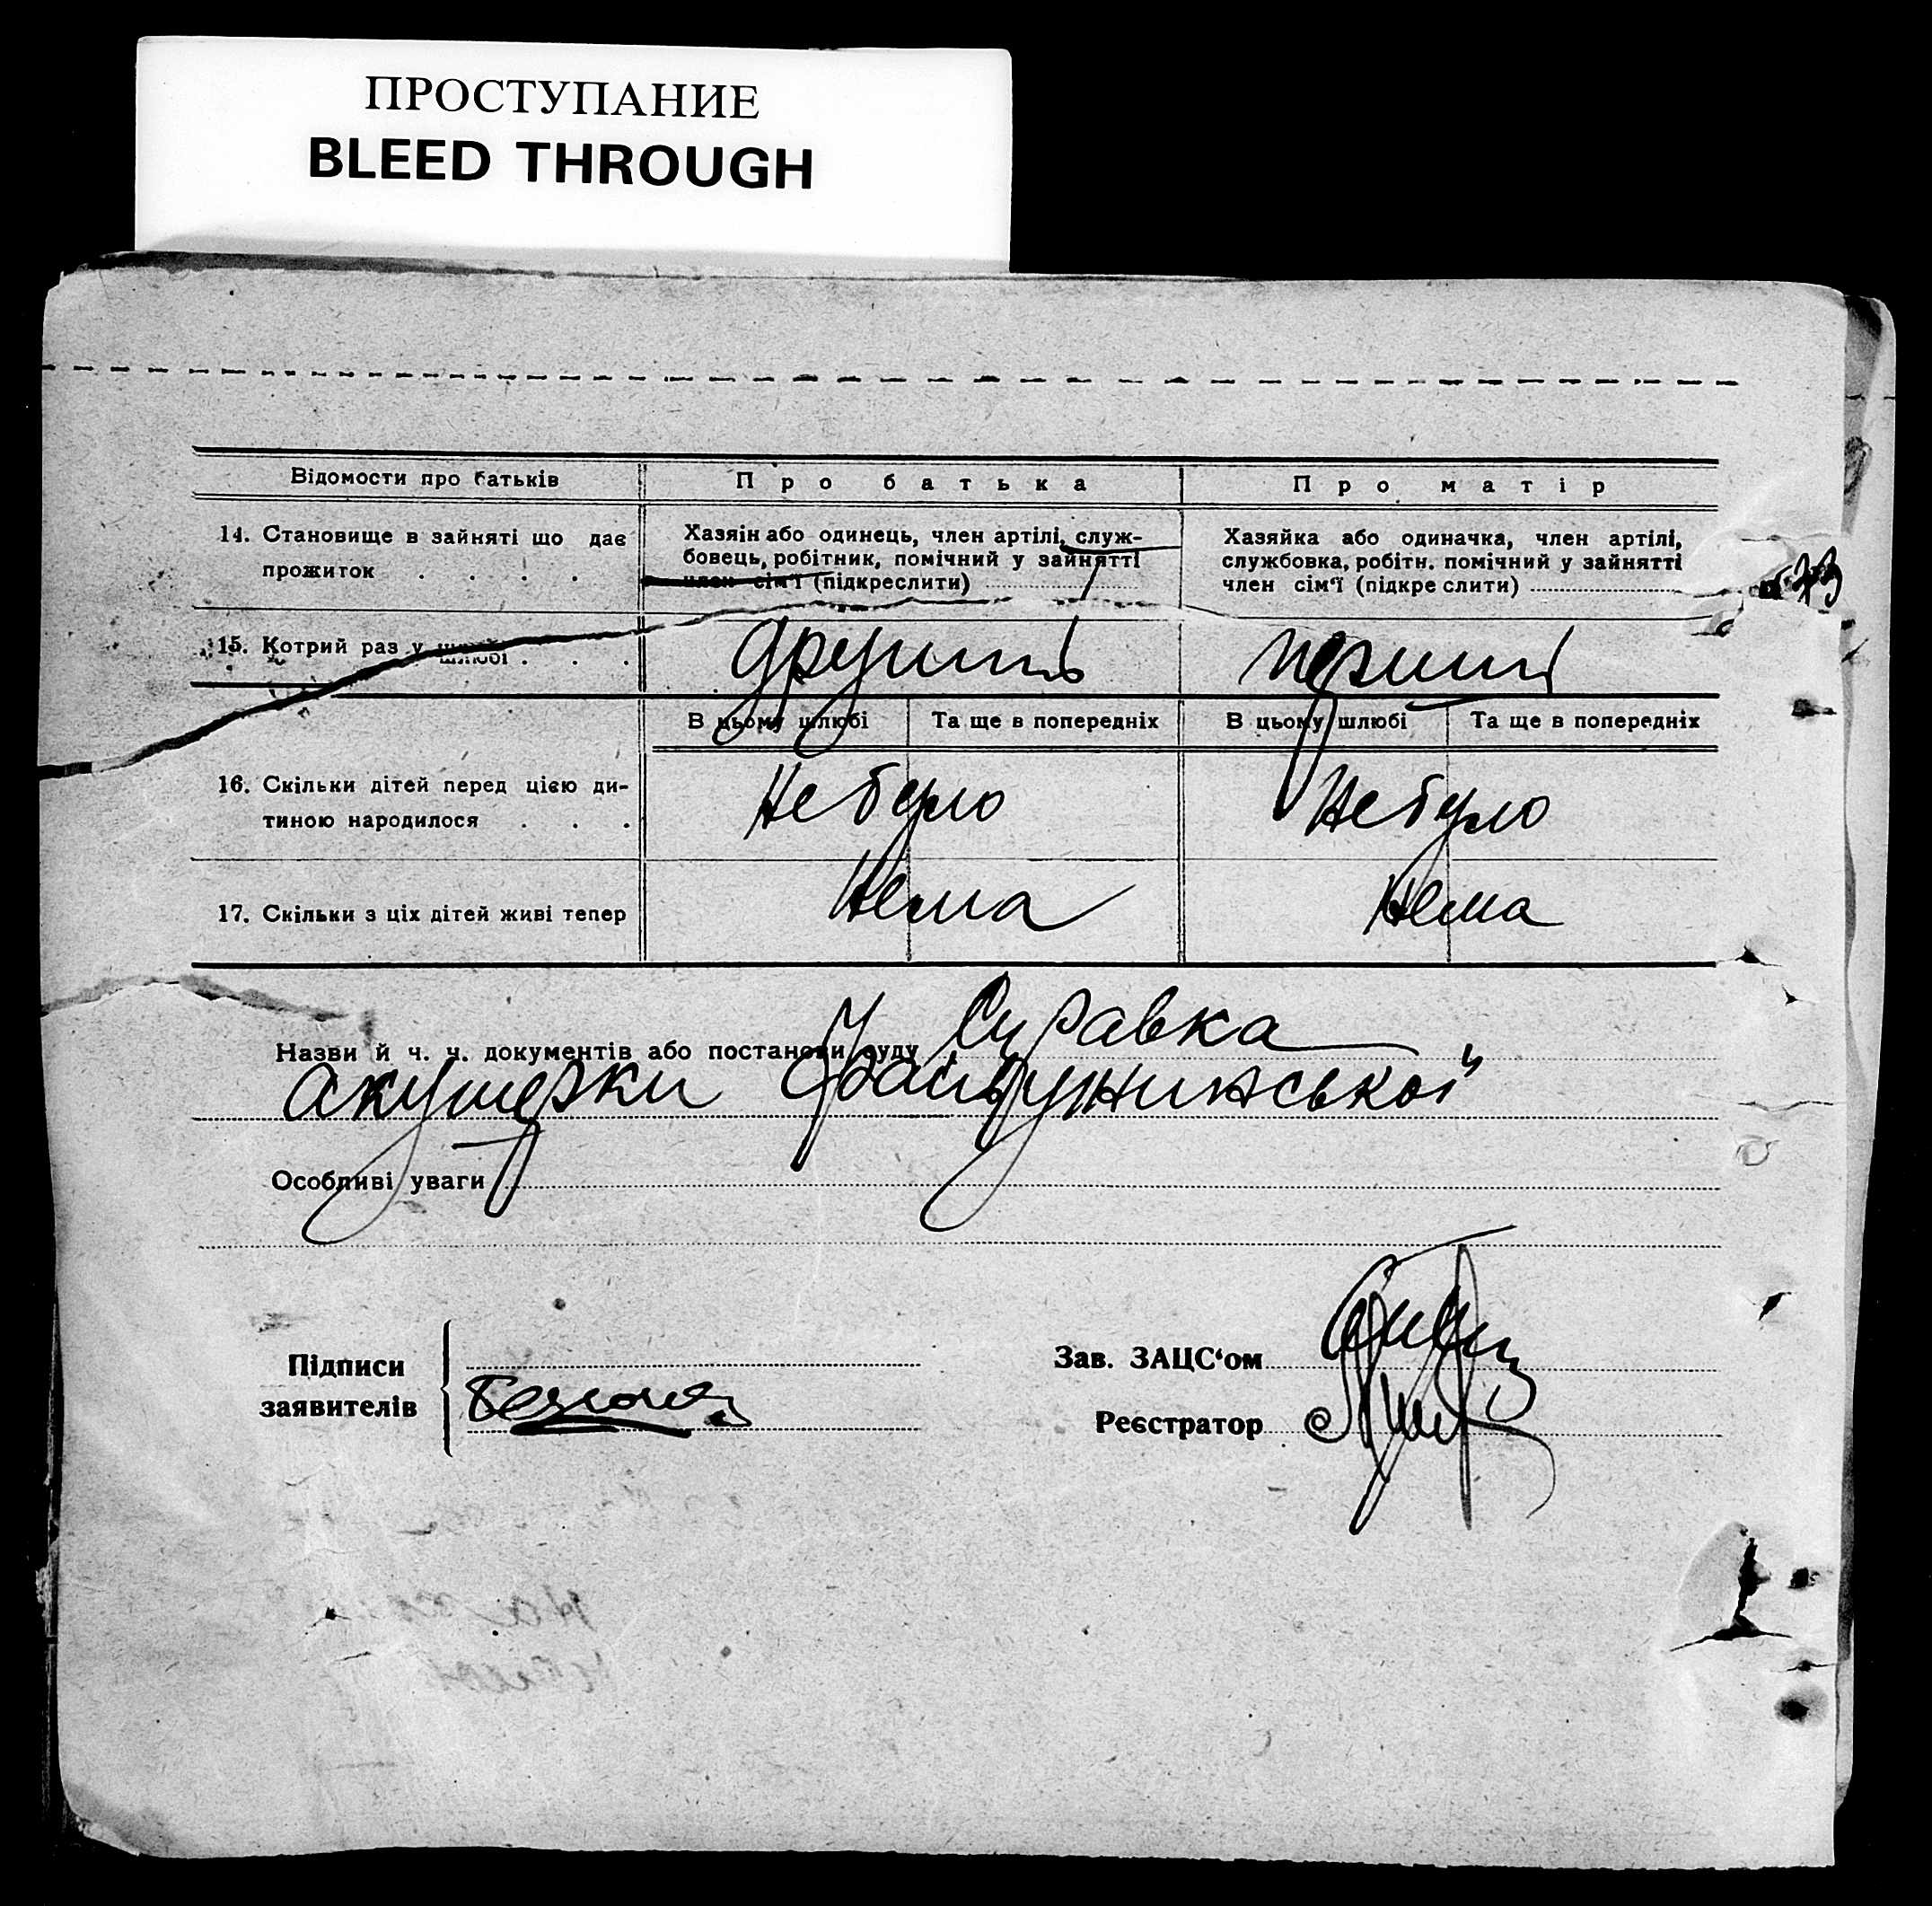 ПРОСТУПАНИЕ
BLEED THROUGH
Відомости про батьків
Про батька
Про матір
14. Становище в зайняті що дає
прожиток . . . .
Хазяін або одинець, член артілі, служ-
бовець, робітник, помічний у зайнятті
член сім'ї (підкреслити)
Хазяйка або одиначка, член артілі,
службовка, робітн. помічний у зайнятті
член сім'ї (підкре слити)
73
15. Котрий раз у шлюбі . . .
другий
перший
В цьому шлюбі
Та ще в попередніх
В цьому шлюбі
Та ще в попередніх
16. Скільки дітей перед цією ди-
тиною народилося . . .
Не було
Не було
17. Скільки з ціх дітей живі тепер
Нема
Нема
Назви й ч. ч. документів або постанови суду Справка
акушерки
Особливі уваги
Підписи
заявителів
Зав. ЗАЦС'ом
Реєстратор